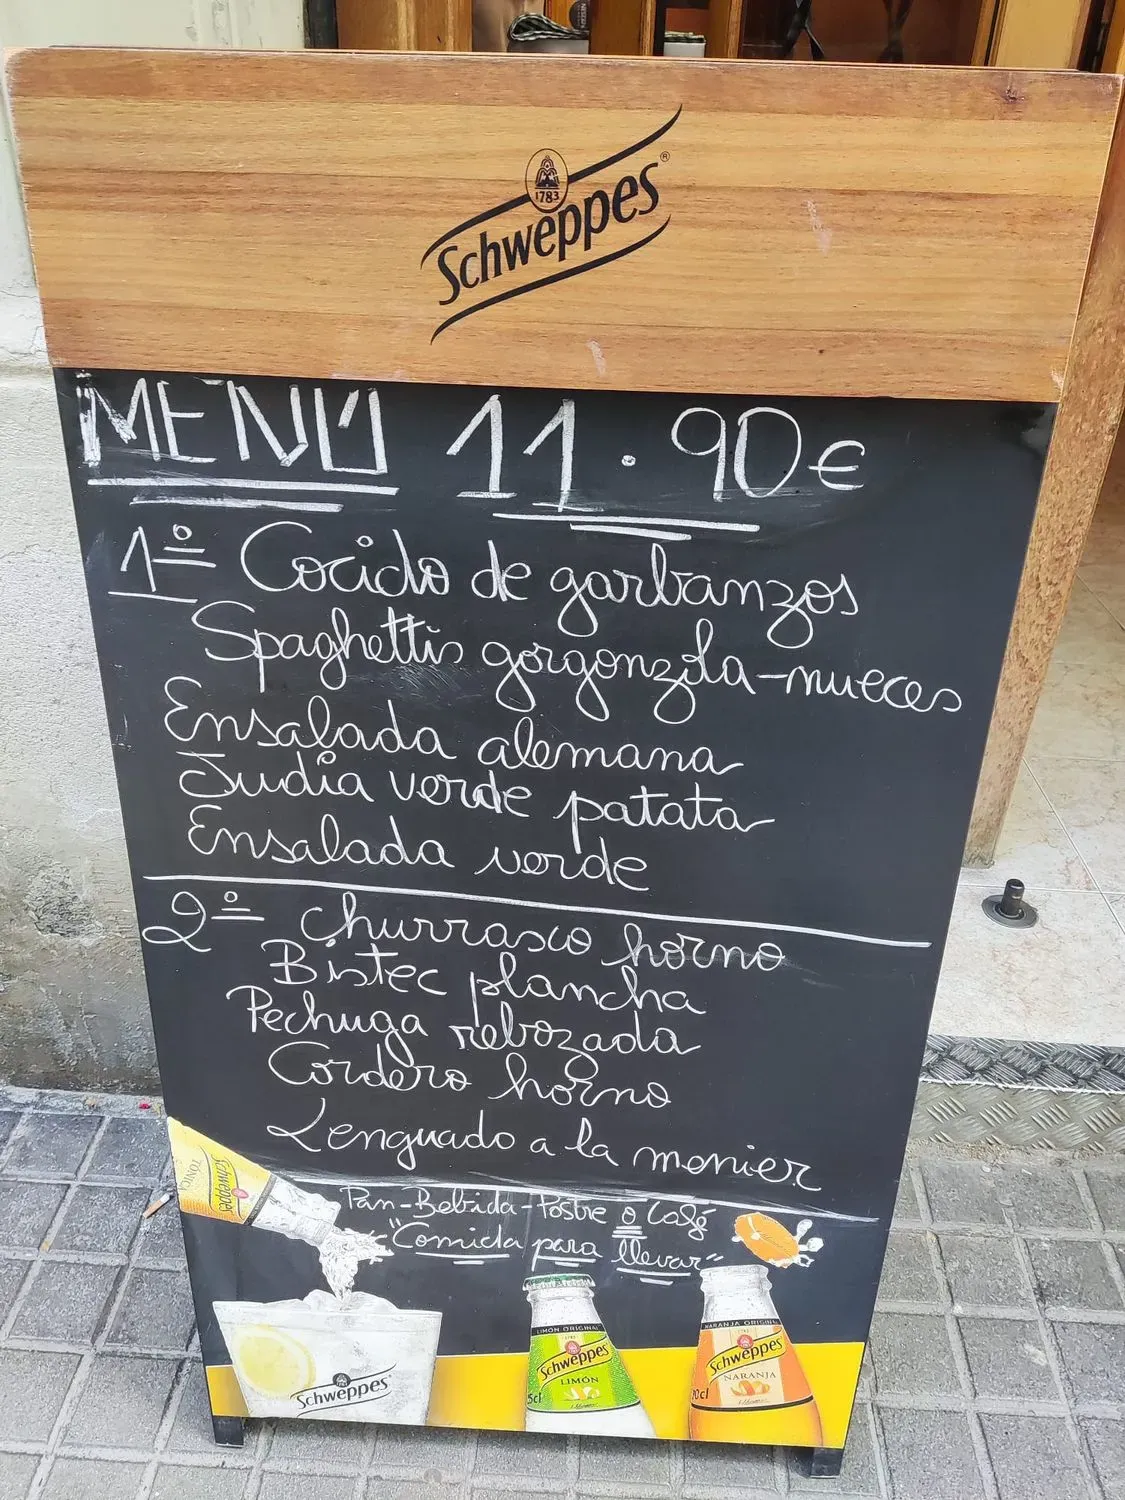 1783
Schweppes®
MENÚ 11.90€
1º Cocido de garbanzos
Spaghettis gorgonzola-nueces
Ensalada alemana
Judia verde patata
Ensalada verde
2º churrasco horno
Bistec plancha
Pechuga rebozada
Cordero horno
Lenguado a la menier
Pan-Bebida-Postre o Café
"Comida para llevar"
TÓNICA
Schweppes
Schweppes
LIMÓN ORIGINAL
1783
Schweppes
LIMÓN
NARANJA ORIGINAL
Schweppes
NARANJA